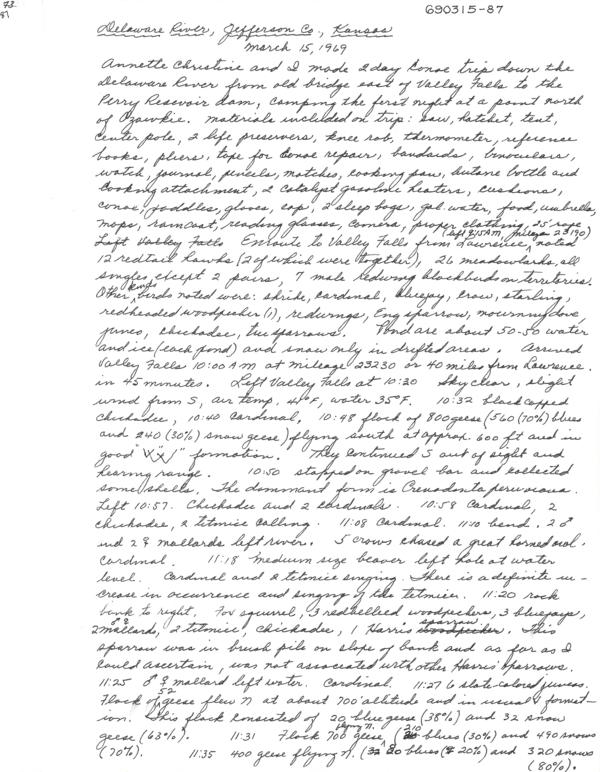 73
87
690315-87
Delaware River, Jefferson Co., Kansas
March 15, 1969
Annette Christine and I made 2 day canoe trip down the
Delaware River from old bridge east of Valley Falls to the
Perry Resevoir dam, camping the first night at a point north
of Ozawkie. Materials included on trip: saw, hatchet, tent,
center pole, 2 life preservers, knee rob, thermometer, reference
books, pliers, tape for canoe repair, bandaids, binoculars,
watch, journal, pencils, matches, cooking pan, butane bottle and
cooking attachment, 2 catalyst gasoline heaters, cushions,
canoe, paddles, gloves, cap, 2 sleep bags, gal water, food, umbrella,
maps, raincoat, reading glasses, camera, proper clothing, 25' rope
(Left 9:15 AM, Mileage 23190)
Left Valley Falls Enroute to Valley Falls from Lawrence, noted
12 redtail hawks (2 of which were together), 26 meadowlarks, all
singles, except 2 pairs, 7 male redwing blackbirds on territories.
Other kinds birds noted were: shrike, cardinal, bluejay, crow, starling,
redheaded woodpecker (1), redwings, Eng sparrow, mourning dove,
junco, chickadee, tree sparrows. Pond are about 50-50 water
and ice (each pond) and snow only in drifted areas. Arrived
Valley Falls 10:00 AM at mileage 23230 or 40 miles from Lawrence
in 45 minutes. Left Valley Falls at 10:20 Sky clear, slight
wind from S, air temp. 41°F, water 35°F. 10:32 black capped
chickadee, 10:40 cardinal, 10:48 flock of 800 geese (560 (70%) blues
and 240 (30%) snow geese) flying south at approx. 600 ft and in
good formation. They continued S out of sight and
hearing range. 10:50 stopped on gravel bar and collected
some shells. The dominant form is Crenodonta peruviana.
Left 10:57. Chickadee and 2 cardinals. 10:58 Cardinal, 2
chickadee, 2 titmice calling. 11:08 Cardinal. 11:10 bend. 2 ♂
and 2 ♀ mallards left river. 5 crows chased a great horned owl.
Cardinal. 11:18 Medium size beaver left hole at water
level. Cardinal and 2 titmice singing. There is a definite in-
crease in occurrence and singing of the titmice. 11:20 rock
bank to right. Fox squirrel, 3 redbellied woodpeckers, 3 bluejays,
2 ♂ ♀ mallards, 2 titmice, chickadee, 1 Harris woodpecker sparrow. This
sparrow was in brush pile on slope of bank and as far as I
could ascertain, was not associated with other Harris' sparrows.
11:25 ♂ ♀ mallard left water. Cardinal. 11:27 6 slate colored juncos.
Flock of 52 geese flew N at about 700' altitude and in usual V format-
ion. This flock consisted of 20 blue geese (38%) and 32 snow
geese (63%). 11:31 Flock 700 geese flying N. (210 blues (30%) and 490 snows
(70%). 11:35 400 geese flying N. (80 blues (20%) and 320 snows
(80%).